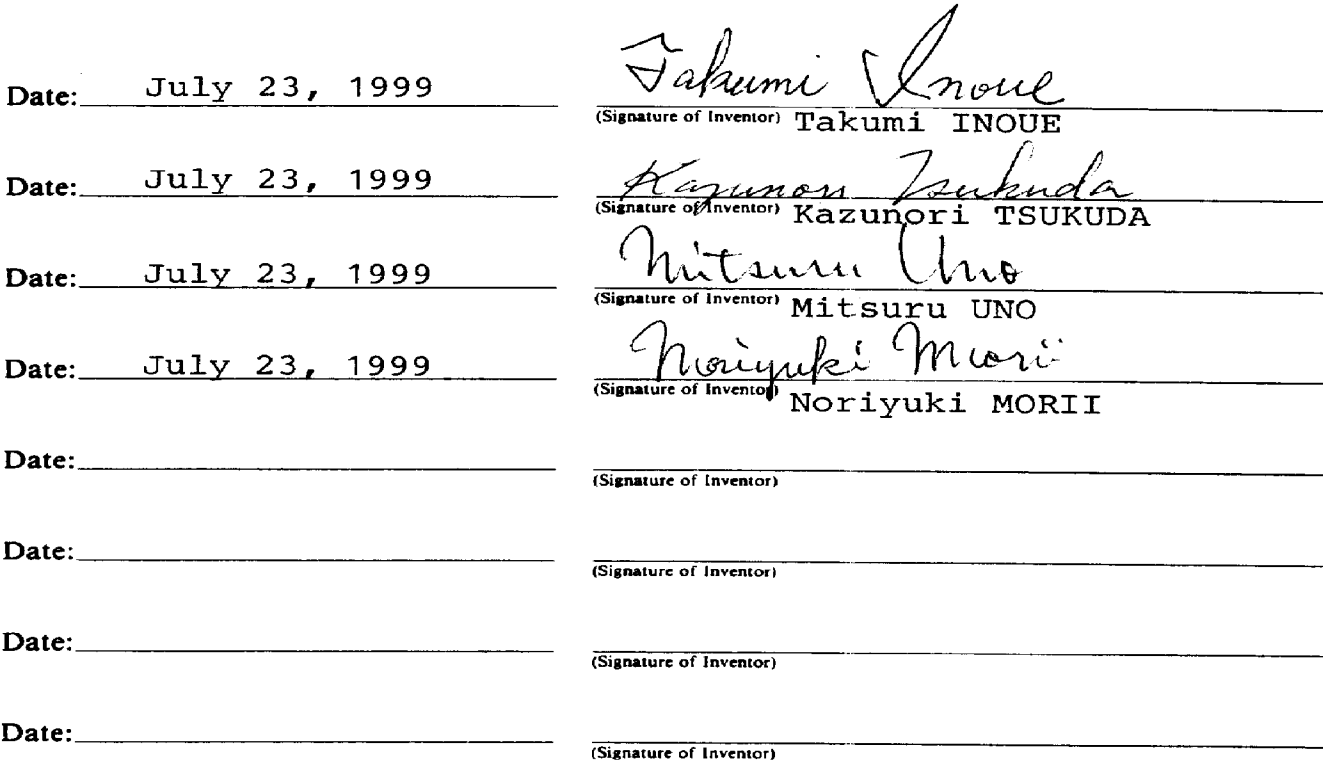 Date: July 23, 1999 Takumi Inoue
(Signature of Inventor) Takumi INOUE
Date: July 23, 1999 Kazunori Tsukuda
(Signature of Inventor) Kazunori TSUKUDA
Date: July 23, 1999 Mitsuru Uno
(Signature of Inventor) Mitsuru UNO
Date: July 23, 1999 Noriyuki Morii
(Signature of Inventor) Noriyuki MORII
Date:
(Signature of Inventor)
Date:
(Signature of Inventor)
Date:
(Signature of Inventor)
Date:
(Signature of Inventor)